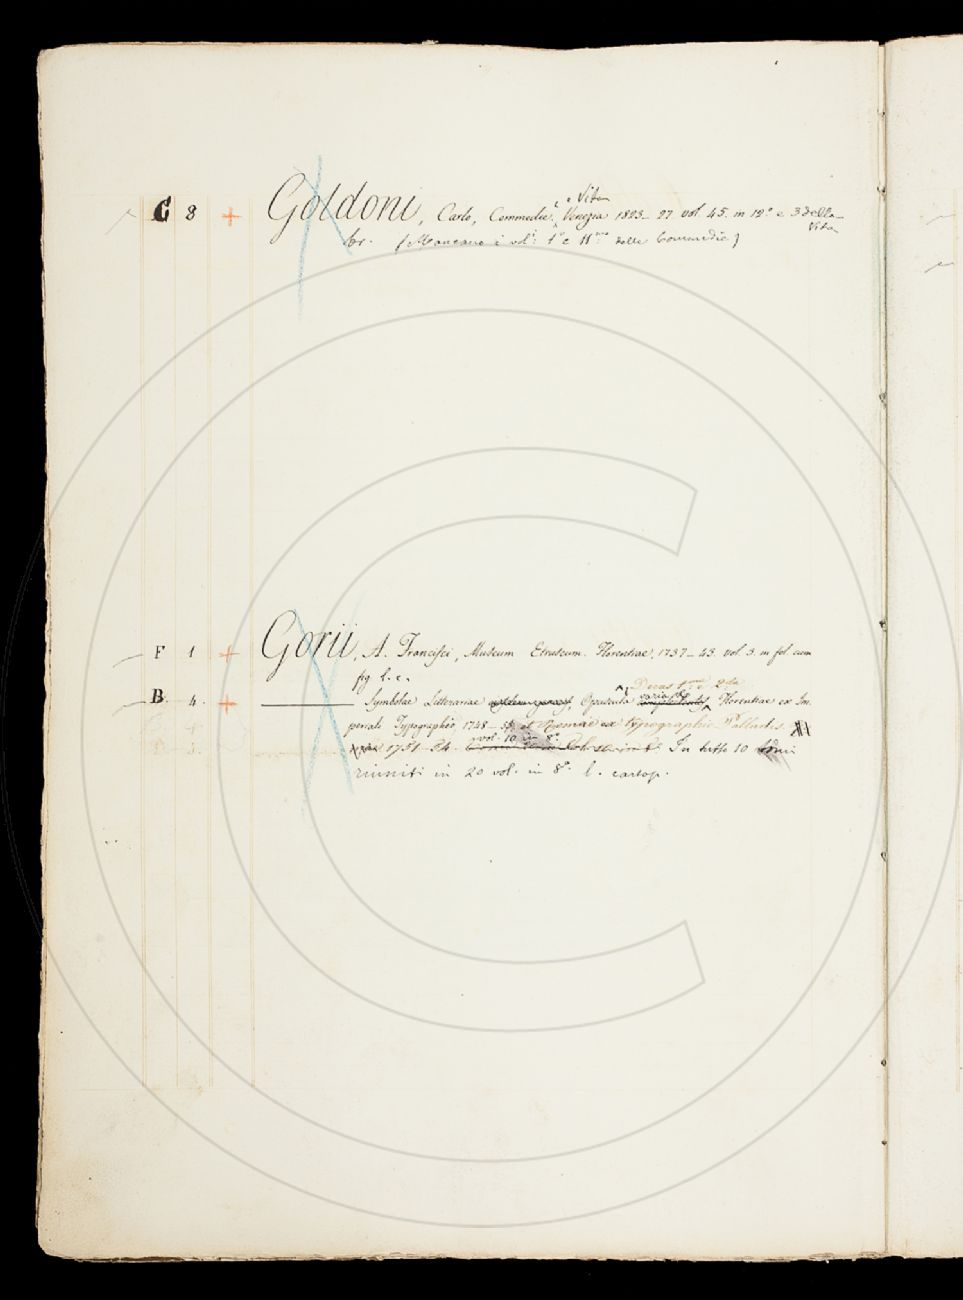 e Vita
G 8 + Goldoni, Carlo, Commedie, Venezia 1823-27 vol. 45. in 12.° e 3 della
Vita
br. (Mancano i vol.i 1.° e 11.mo delle Commedie)
F 1 + Gorii, A. Francisci, Museum Etruscum. Florentiae, 1737-43. vol. 3. in fol. cum
fig. l. c.
Decas 1.ma e 2.da
B. 4. + Symbolae Litterariae Opuscula varia Florentiae ex Im
periali Typographio, 1748- et Romae ex typographio Palladis.
vol. 10 in 8.°
1751-54. In tutto 10 tomi
riuniti in 20 vol. in 8.° l. cartop.